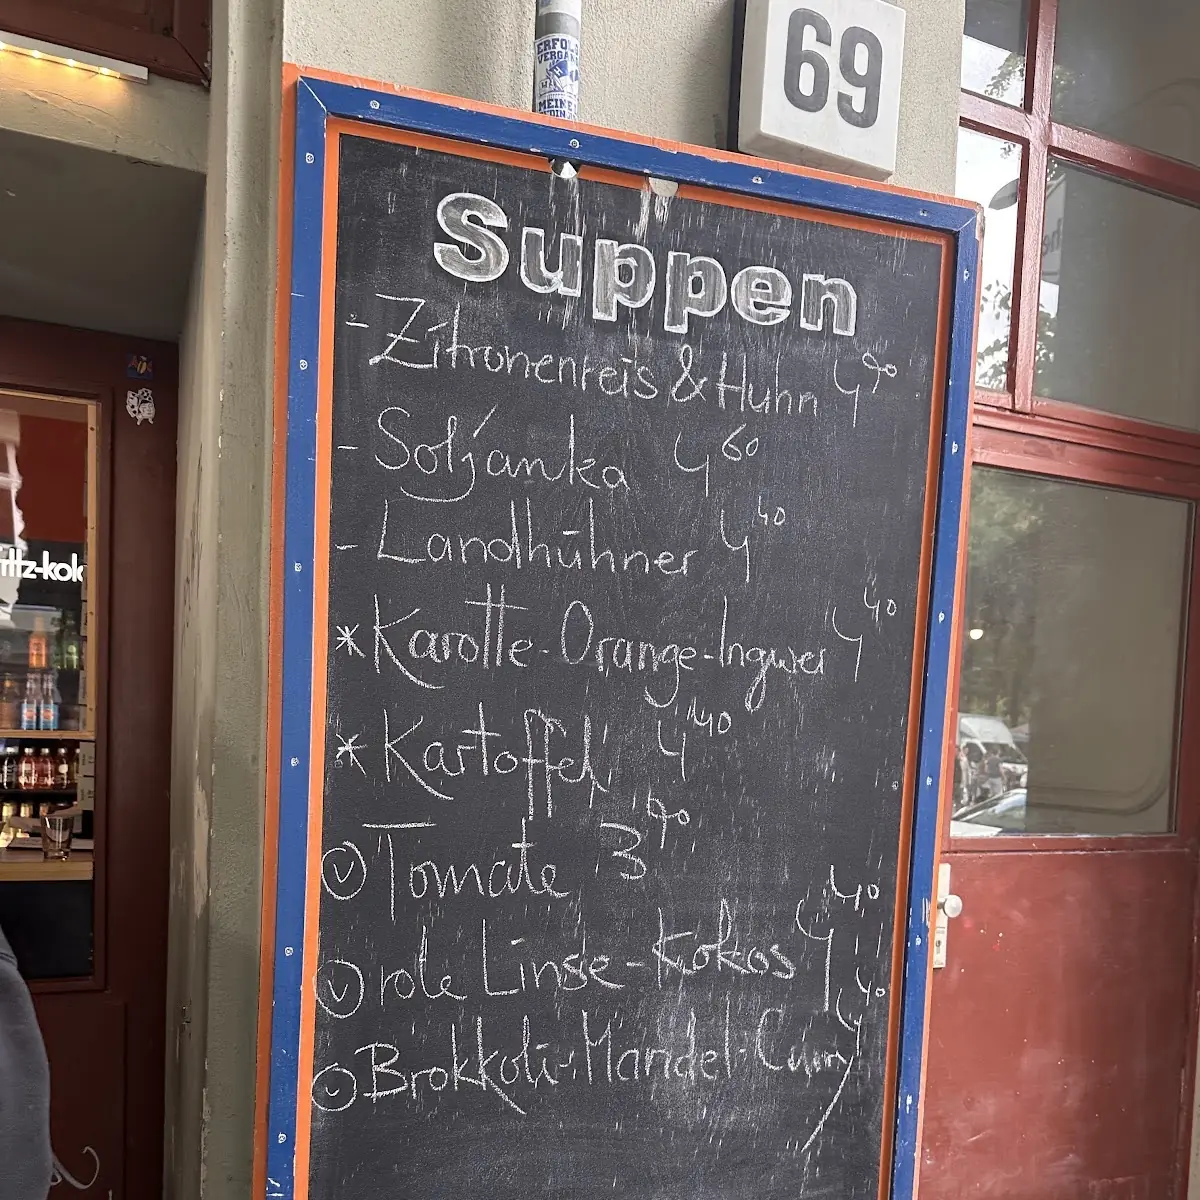 69
ERFOL
VERGÄN
MEINE
Suppen
- Zitronenreis & Huhn 4 90
- Soljanka 4 60
- Landhühner 4 40
* Karotte-Orange-Ingwer 4 40
* Kartoffel 4 40
Ⓥ Tomate 3 90
Ⓥ rote Linse-Kokos 4 40
Ⓥ Brokkoli-Mandel-Curry 4 40
ritz-kola